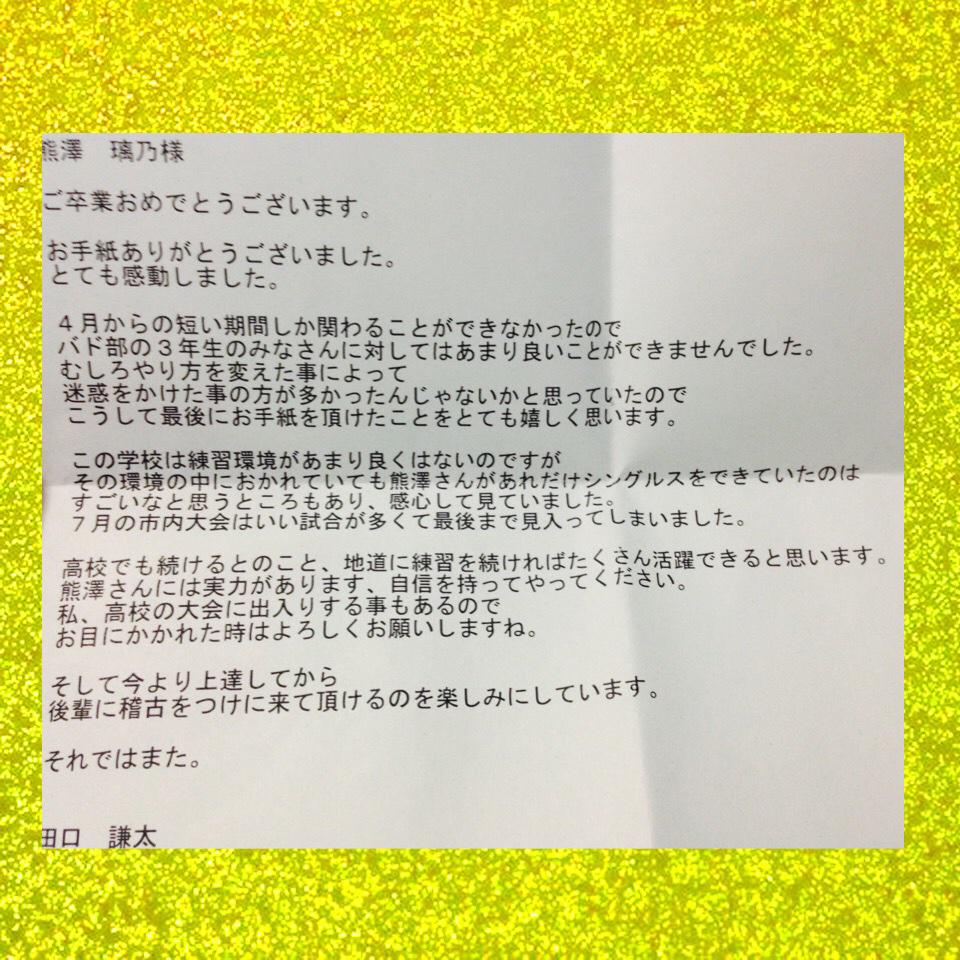 熊澤　璃乃様
ご卒業おめでとうございます。
お手紙ありがとうございました。
とても感動しました。
４月からの短い期間しか関わることができなかったので
バド部の３年生のみなさんに対してはあまり良いことができませんでした。
むしろやり方を変えた事によって
迷惑をかけた事の方が多かったんじゃないかと思っていたので
こうして最後にお手紙を頂けたことをとても嬉しく思います。
この学校は練習環境があまり良くはないのですが
その環境の中におかれていても熊澤さんがあれだけシングルスをできていたのは
すごいなと思うところもあり、感心して見ていました。
７月の市内大会はいい試合が多くて最後まで見入ってしまいました。
高校でも続けるとのこと、地道に練習を続ければたくさん活躍できると思います。
熊澤さんには実力があります、自信を持ってやってください。
私、高校の大会に出入りする事もあるので
お目にかかれた時はよろしくお願いしますね。
そして今より上達してから
後輩に稽古をつけに来て頂けるのを楽しみにしています。
それではまた。
田口　謙太